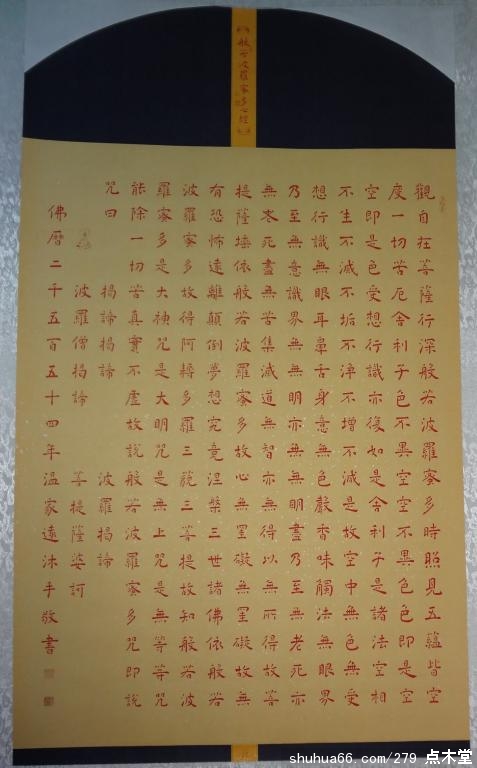 般若波羅蜜多心經
觀自在菩薩行深般若波羅蜜多時照見五蘊皆空
度一切苦厄舍利子色不異空空不異色色即是空
空即是色受想行識亦復如是舍利子是諸法空相
不生不滅不垢不淨不增不減是故空中無色無受
想行識無眼耳鼻舌身意無色聲香味觸法無眼界
乃至無意識界無無明亦無無明盡乃至無老死亦
無老死盡無苦集滅道無智亦無得以無所得故菩
提薩埵依般若波羅蜜多故心無罣礙無罣礙故無
有恐怖遠離顛倒夢想究竟涅槃三世諸佛依般若
波羅蜜多故得阿耨多羅三藐三菩提故知般若波
羅蜜多是大神咒是大明咒是無上咒是無等等咒
能除一切苦真實不虛故說般若波羅蜜多咒即說
咒曰 揭諦揭諦 波羅揭諦
波羅僧揭諦 菩提薩婆訶
佛曆二千五百五十四年溫家遠沐手敬書
shuhua66.com/279 点木堂